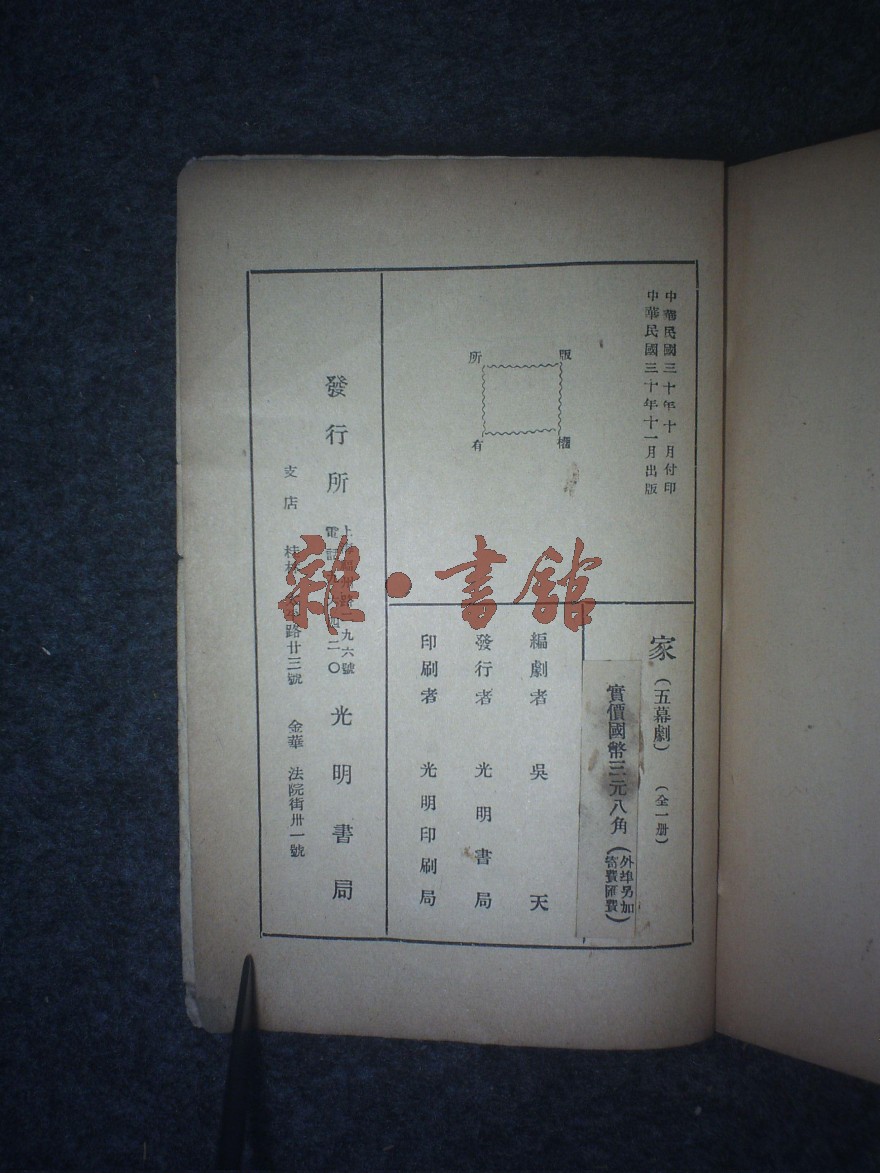 中華民國三十年十月付印
中華民國三十年十一月出版
版權所有
家（五幕劇）（全一册）
實價國幣三元八角（外埠另加寄費匯費）
編劇者 吳天
發行者 光明書局
印刷者 光明印刷局
發行所 光明書局
上海 路 九六號
電話 二〇
支店 桂林 路廿三號 金華 法院街卅一號
雜·書館